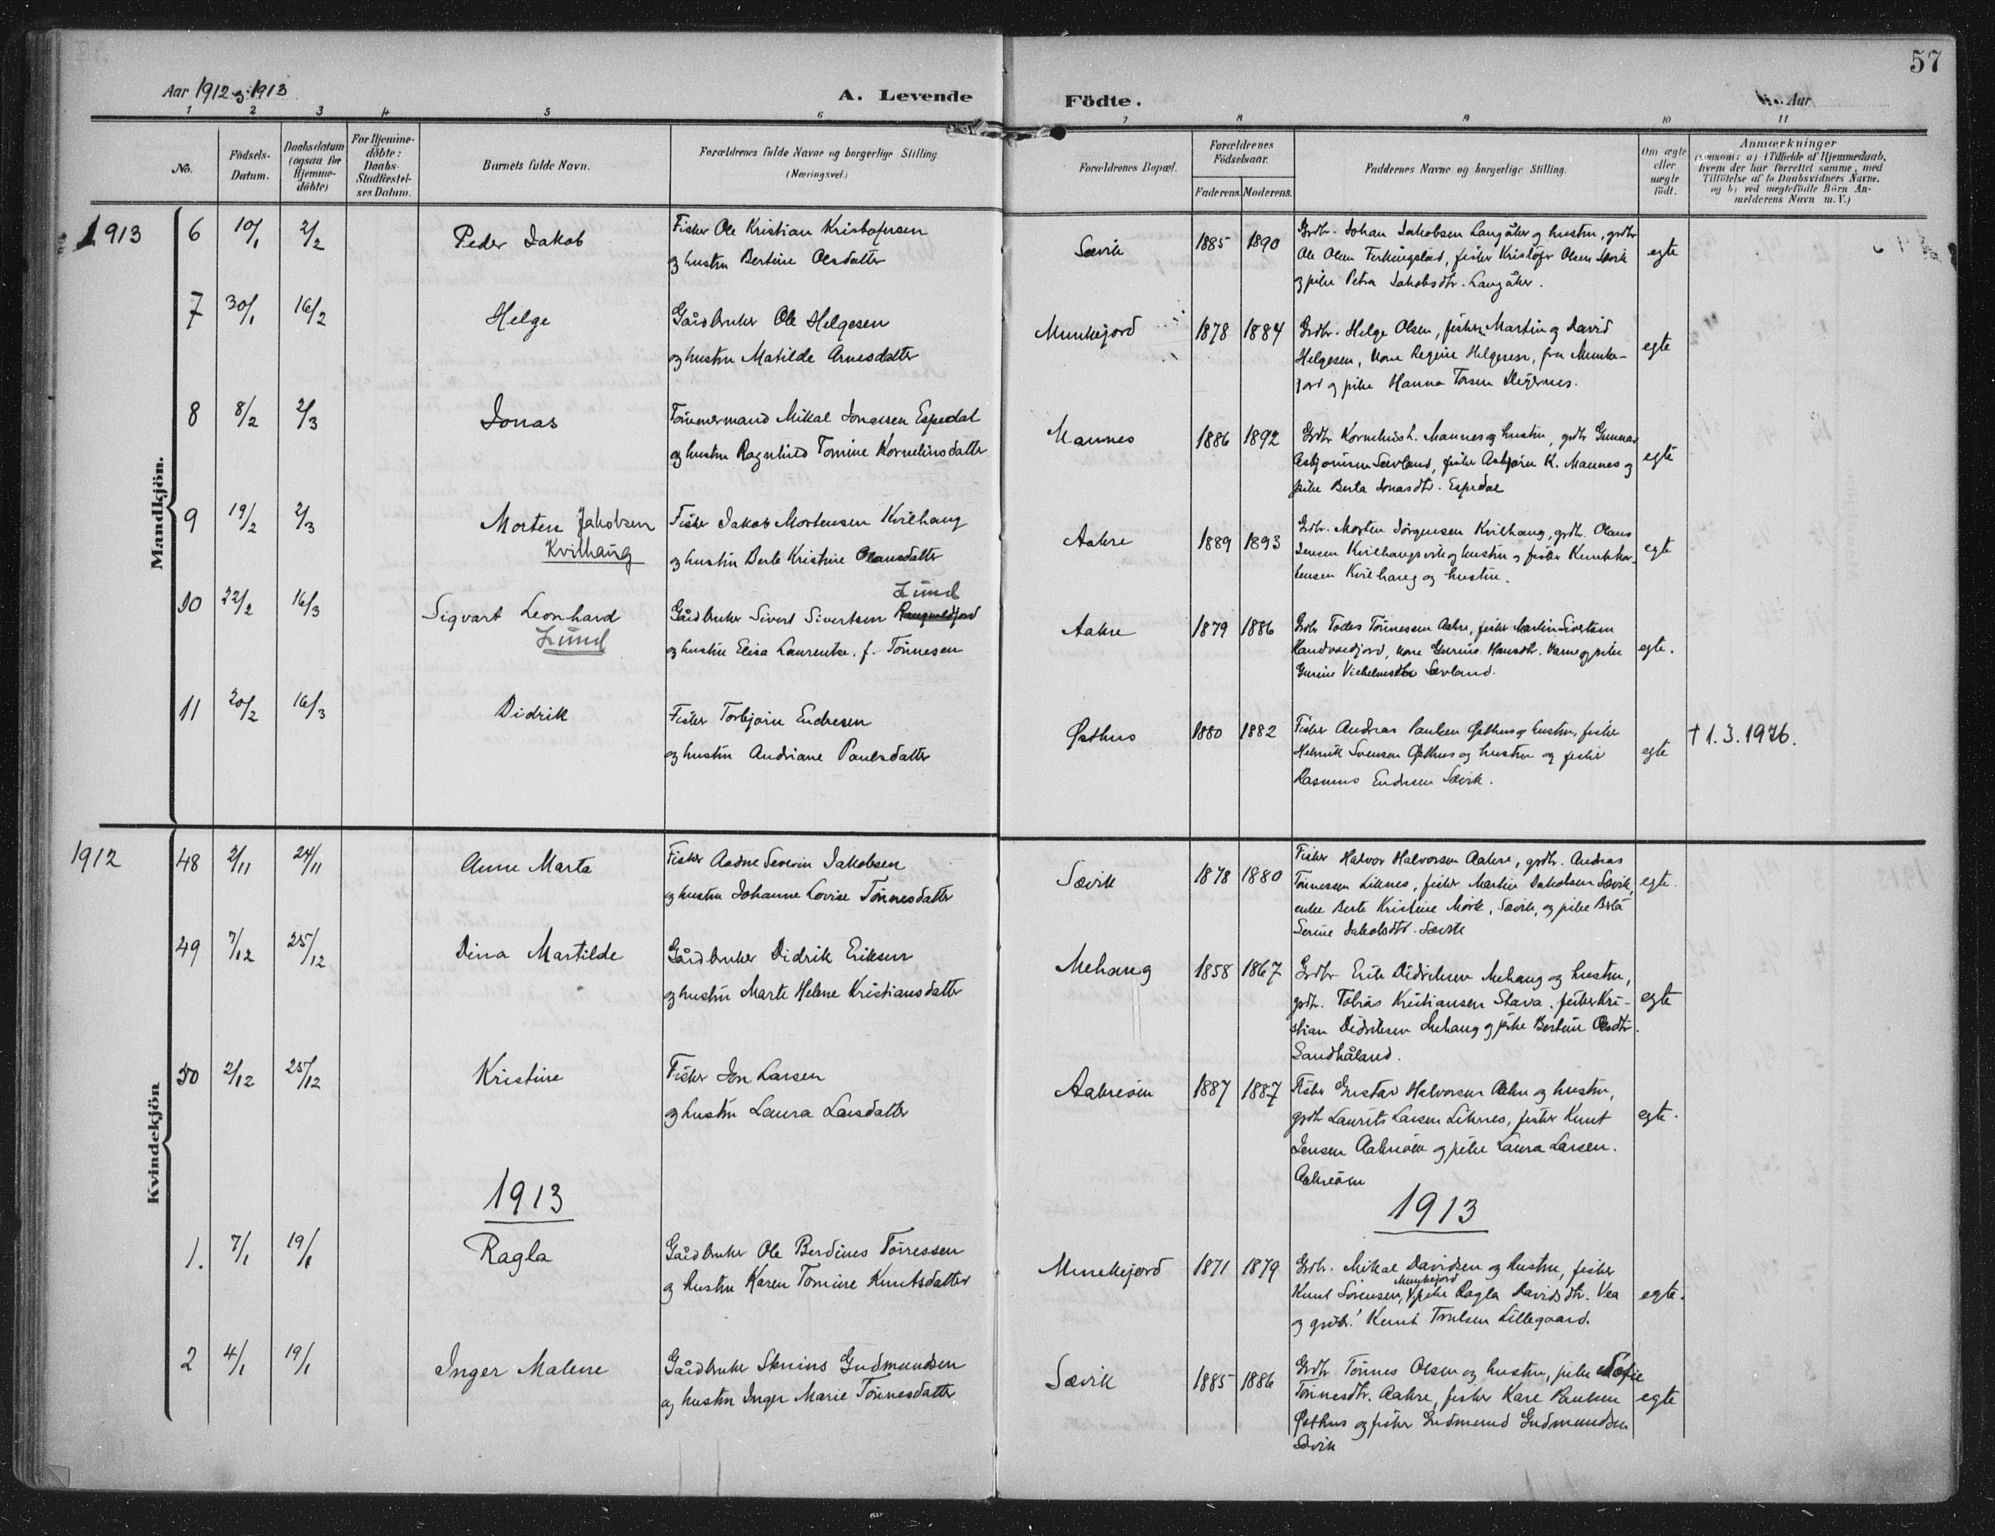 57
Aar 1912 og 1913
A. Levende Födte.
Aar
1 2 3 4 5 6 7 8 9 10 11
No.
Födsels-Datum.
Daabsdatum (ogsaa for Hjemme-döbte)
For Hjemme-döbte: Daabs-Stadfæstel-ses Datum.
Barnets fulde Navn.
Forældrenes fulde Navne og borgerlige Stilling
(Næringsvei.)
Forældrenes Bopæl.
Forældrenes Födselsaar.
Faderens. Moderens.
Faddernes Navne og borgerlige Stilling.
Om ægte eller uægte födt.
Anmærkninger
(saasom: a) i Tilfælde af Hjemmedaab,
hvem der har forrettet samme, med
Tilföielse af to Daabsvidners Navne,
og b) ved uægtefödte Börn An-
melderens Navn m. V.)
Mandkjön.
1913
6 10/1 2/2 Peder Jakob
Fisker Ole Kristian Kristofersen
og hustru Bertine Olsdatter
Sævik 1885 1890
Grdbr. Johan Jakobsen Langåker og hustru, grdbr
Ole Olsen Ferkingstad, fisker Kristofer Olsen Sævik
og pike Petra Jakobsdtr. Langåker.
egte
7 30/1 16/2 Helge
Gårdbruker Ole Helgesen
og hustru Matilde Arnesdatter
Munkejord 1878 1884
Grdbr. Helge Olsen, fisker Martin og David
Helgesen, kone Regine Helgesen, fra Munke-
jord og pike Hanna
egte
8 8/2 2/3 Jonas
Tömmermand Mikal Jonassen Espedal
og hustru Ragnhild Tomine Korneliusdatter
Mannes 1886 1892
Grdbr Kornelius L. Mannes og hustru, grdbr Gunnar
Asbjörnsen Sævland, fisker Asbjörn K. Mannes og
pike Berta Jonasdtr. Espedal
egte
9 19/2 2/3 Morten Jakobsen
Kvilhaug
Fisker Jakob Mortensen Kvilhaug
og hustru Berte Kristine Olausdatter
Aakre 1889 1893
Grdbr. Morten Jörgensen Kvilhaug, grdbr. Olaus
Jensen Kvilhaugsvik og hustru og fisker Knut
Kvilhaug og hustru.
egte
10 22/2 16/3 Sigvart Leonhard
Lund
Lund
Gårdbruker Sivert Sivertsen
og hustru Elisa Laurentse. f. Tönnesen
Aakre 1879 1886
Grdbr Tönnesen Aakre, fisker Martin Sivertsen
kone Gurine og pike
Gurine Vilhelmsdtr Sævland.
egte.
11 20/2 16/3 Didrik
Fisker Torbjörn Endresen
og hustru Andriane Paulsdatter
Østhus 1880 1882
Fisker Andreas Paulsen Østhus og hustru, fisker
Henrik Svensen Østhus og hustru og fisker
Rasmus Endresen Sævik.
egte
† 1.3.1976.
Kvindekjön
1912
48 2/11 24/11 Anne Marta
Fisker Aadne Severin Jakobsen
og hustru Johanne Lovise Tönnesdatter
Sævik 1878 1880
Fisker Halvor Halvorsen Aakre, grdbr. Andreas
Tönnessen Liknes, fisker Martin Jakobsen Sævik,
enke Berte Kristine Mörk, Sævik, og pike Berta
Serine Jakobsdtr. Sævik
egte.
49 7/12 25/12 Dina Martilde
Gårdbruker Didrik Eriksen
og hustru Marte Helene Kristiansdatter
Mehaug 1858 1867
Grdbr Erik Didriksen Mehaug og hustru,
grdbr. Tobias Kristiansen Stava, fisker Kri-
stian Didriksen Mehaug og pike Bertine Olsdtr.
Sandhåland.
egte
50 2/12 25/12 Kristine
Fisker Jon Larsen
og hustru Laura Larsdatter
Aakreöen 1887 1887
Fisker Gustav Halvorsen Aakre og hustru,
grdbr Laurits Larsen Liknes, fisker Knut
Jensen Aakreöen og pike Laura Larsen.
Aakreöen
egte.
1913
1913
1. 7/1 19/1 Ragla
Gårdbruker Ole Berdines Törressen
og hustru Karen Tomine Knutsdatter
Munkejord 1871 1879
Grdbr. Mikal Davidsen og hustru, fisker
Knut Sörensen, Munkejord pike Ragla Davidsdtr. Vea
og grdbr. Knut Troelsen Lillegaard.
egte.
2 4/1 19/1 Inger Malene
Gårdbruker Gudmundsen
og hustru Inger Marie Tönnesdatter
Sævik 1885 1886
Grdbr Tönnes Olsen og hustru, pike Sofie
Tönnesdtr. Aakre, fisker Kare Paulsen
Østhus og fisker Gudmund Gudmundsen
Sævik
egte